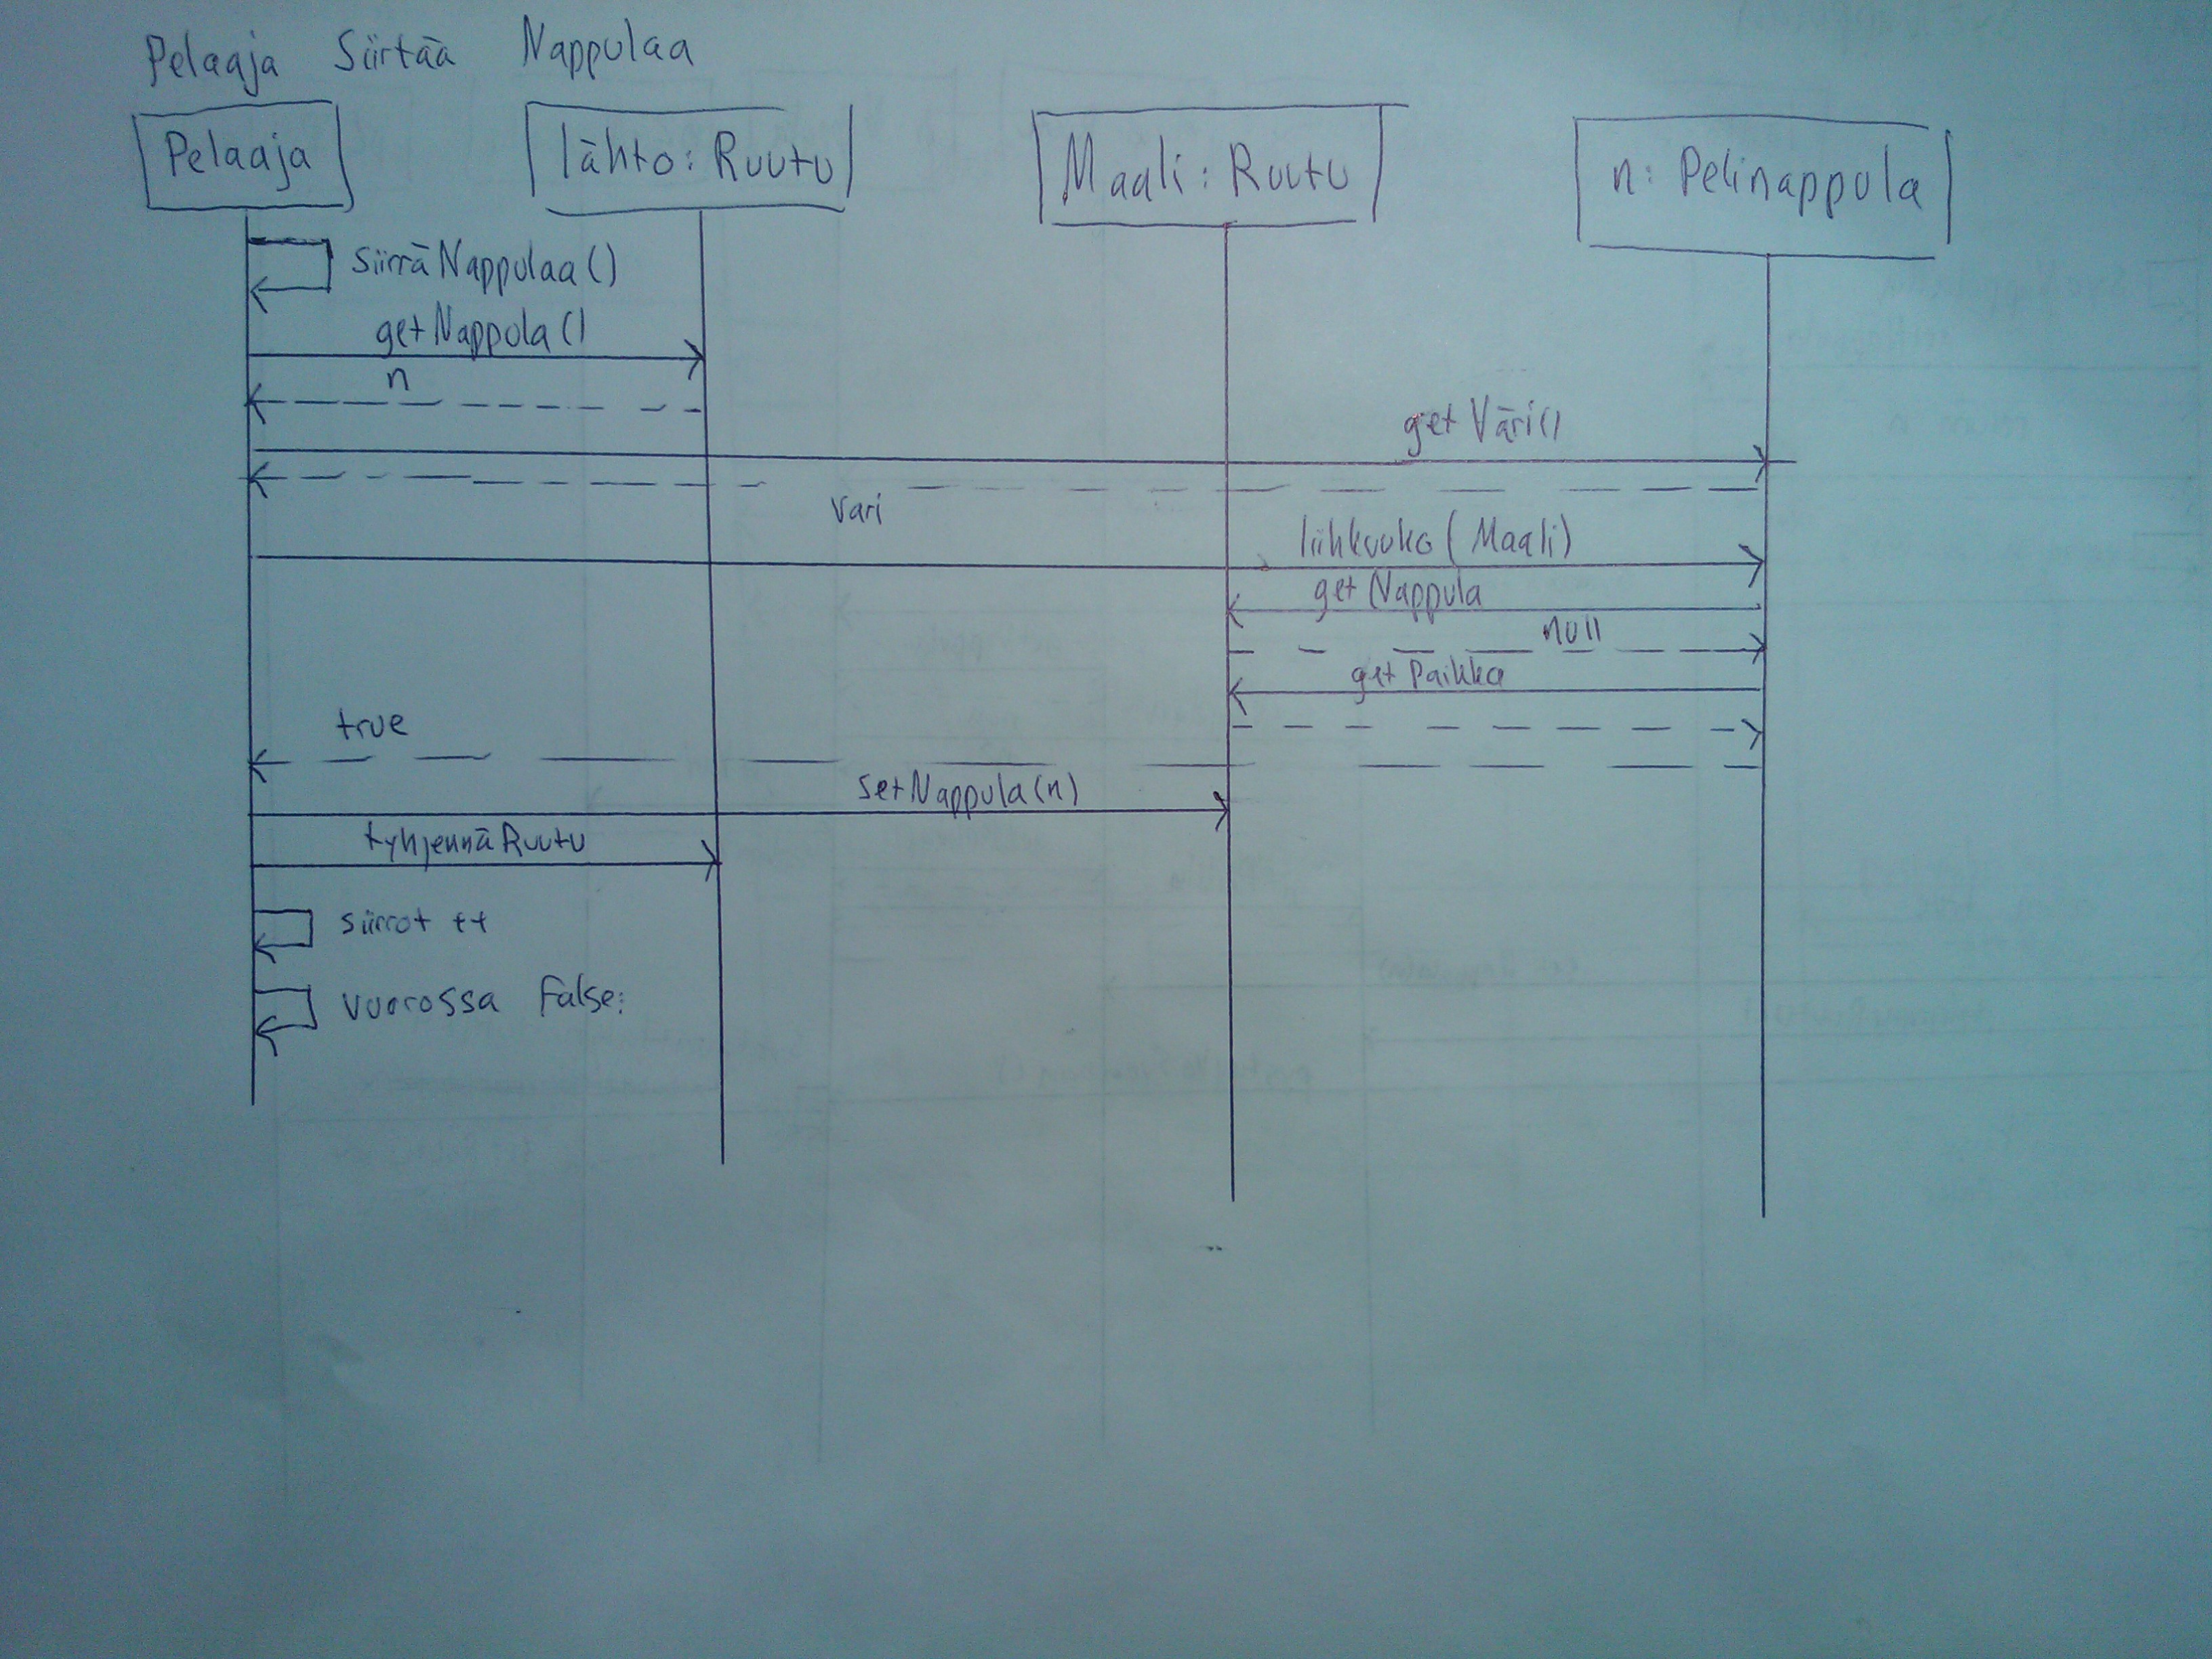 Pelaaja Siirtää Nappulaa
Pelaaja
lähto: Ruutu
Maali: Ruutu
n: Pelinappula
siirräNappulaa()
getNappula()
n
getVäri()
vari
liihkuuko(Maali)
getNappula
null
getPaikka
true
setNappula(n)
tyhjennäRuutu
siirrot ++
vuorossa False: